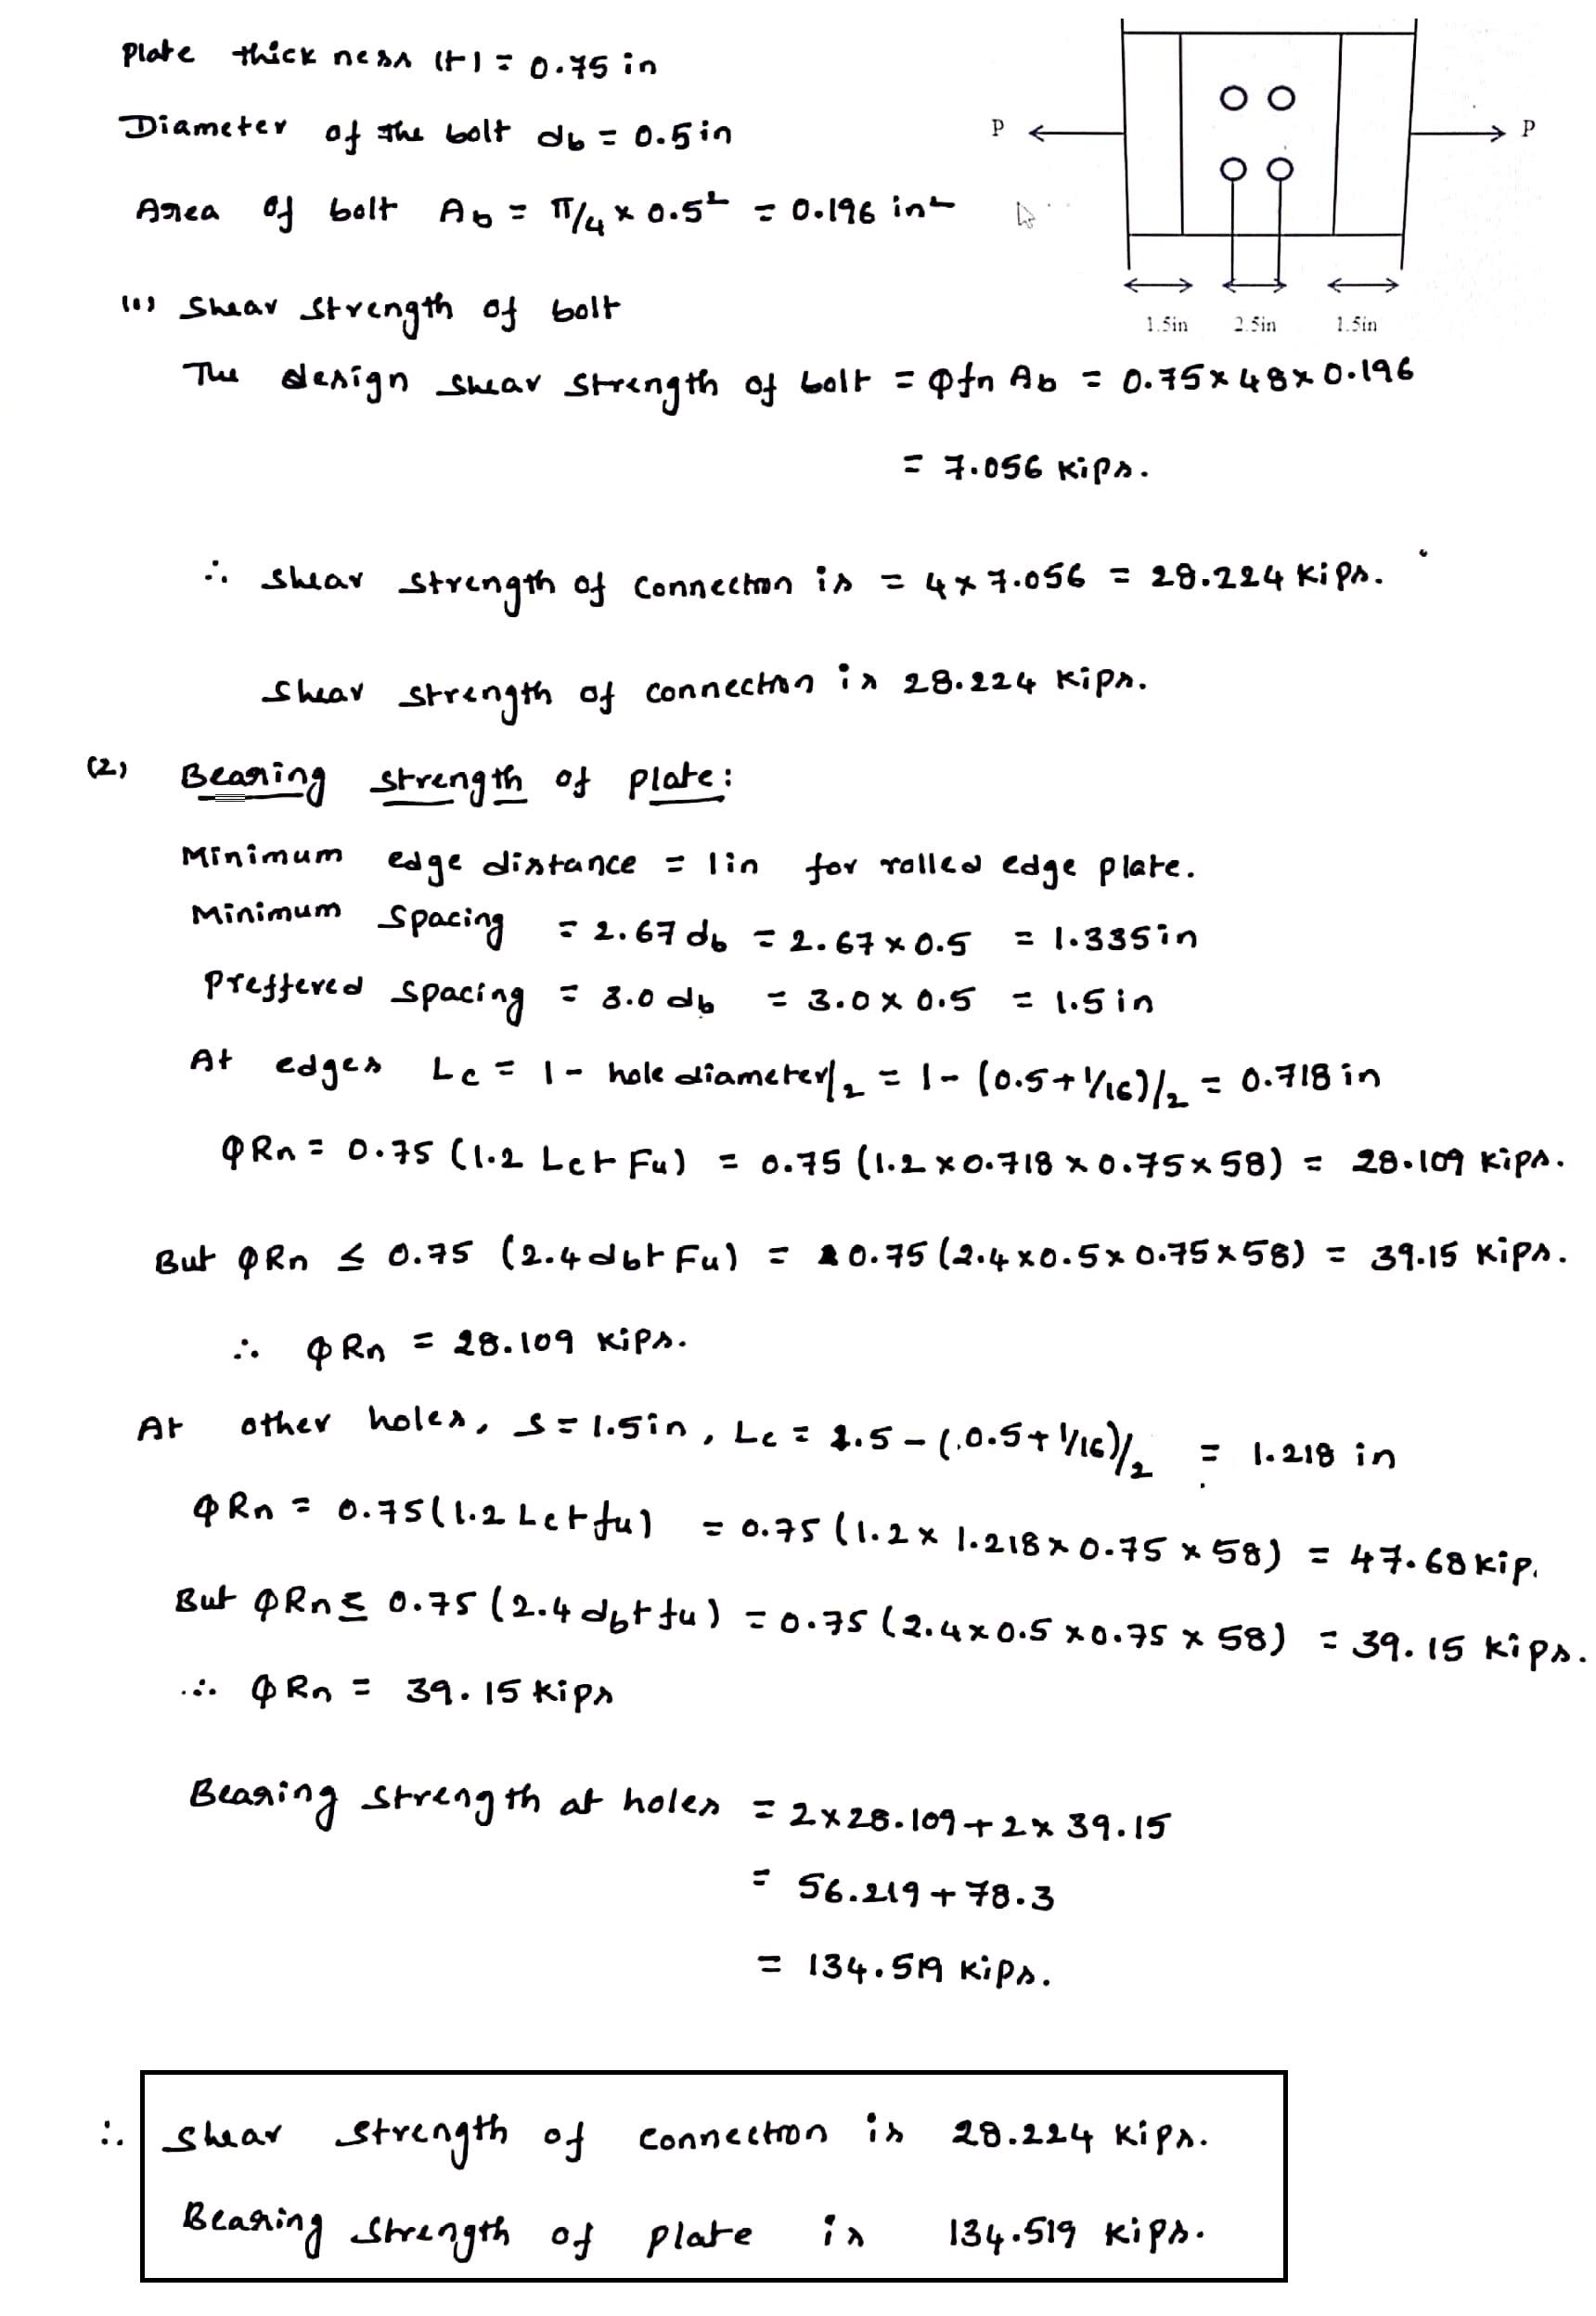 Plate thickness (t) = 0.75 in
Diameter of the bolt db = 0.5 in
Area of bolt Ab = π/4 × 0.5² = 0.196 in²
P
P
1.5in 2.5in 1.5in
(1) Shear strength of bolt
The design shear strength of bolt = φfn Ab = 0.75 × 48 × 0.196
= 7.056 kips.
∴ shear strength of connection is = 4 × 7.056 = 28.224 kips.
Shear strength of connection is 28.224 kips.
(2) Bearing strength of plate:
Minimum edge distance = 1in for rolled edge plate.
Minimum spacing = 2.67 db = 2.67 × 0.5 = 1.335in
Preffered spacing = 3.0 db = 3.0 × 0.5 = 1.5 in
At edges Lc = 1 - hole diameter/2 = 1 - (0.5 + 1/16)/2 = 0.718 in
φRn = 0.75 (1.2 Lc t Fu) = 0.75 (1.2 × 0.718 × 0.75 × 58) = 28.109 kips.
But φRn ≤ 0.75 (2.4 db t Fu) = 0.75 (2.4 × 0.5 × 0.75 × 58) = 39.15 kips.
∴ φRn = 28.109 kips.
At other holes, S = 1.5in, Lc = 1.5 - (0.5 + 1/16)/2 = 1.218 in
φRn = 0.75 (1.2 Lc t fu) = 0.75 (1.2 × 1.218 × 0.75 × 58) = 47.68 kip.
But φRn ≤ 0.75 (2.4 db t fu) = 0.75 (2.4 × 0.5 × 0.75 × 58) = 39.15 kips.
∴ φRn = 39.15 kips
Bearing strength at holes = 2 × 28.109 + 2 × 39.15
= 56.219 + 78.3
= 134.519 kips.
∴ Shear strength of connection is 28.224 kips.
Bearing strength of plate is 134.519 kips.